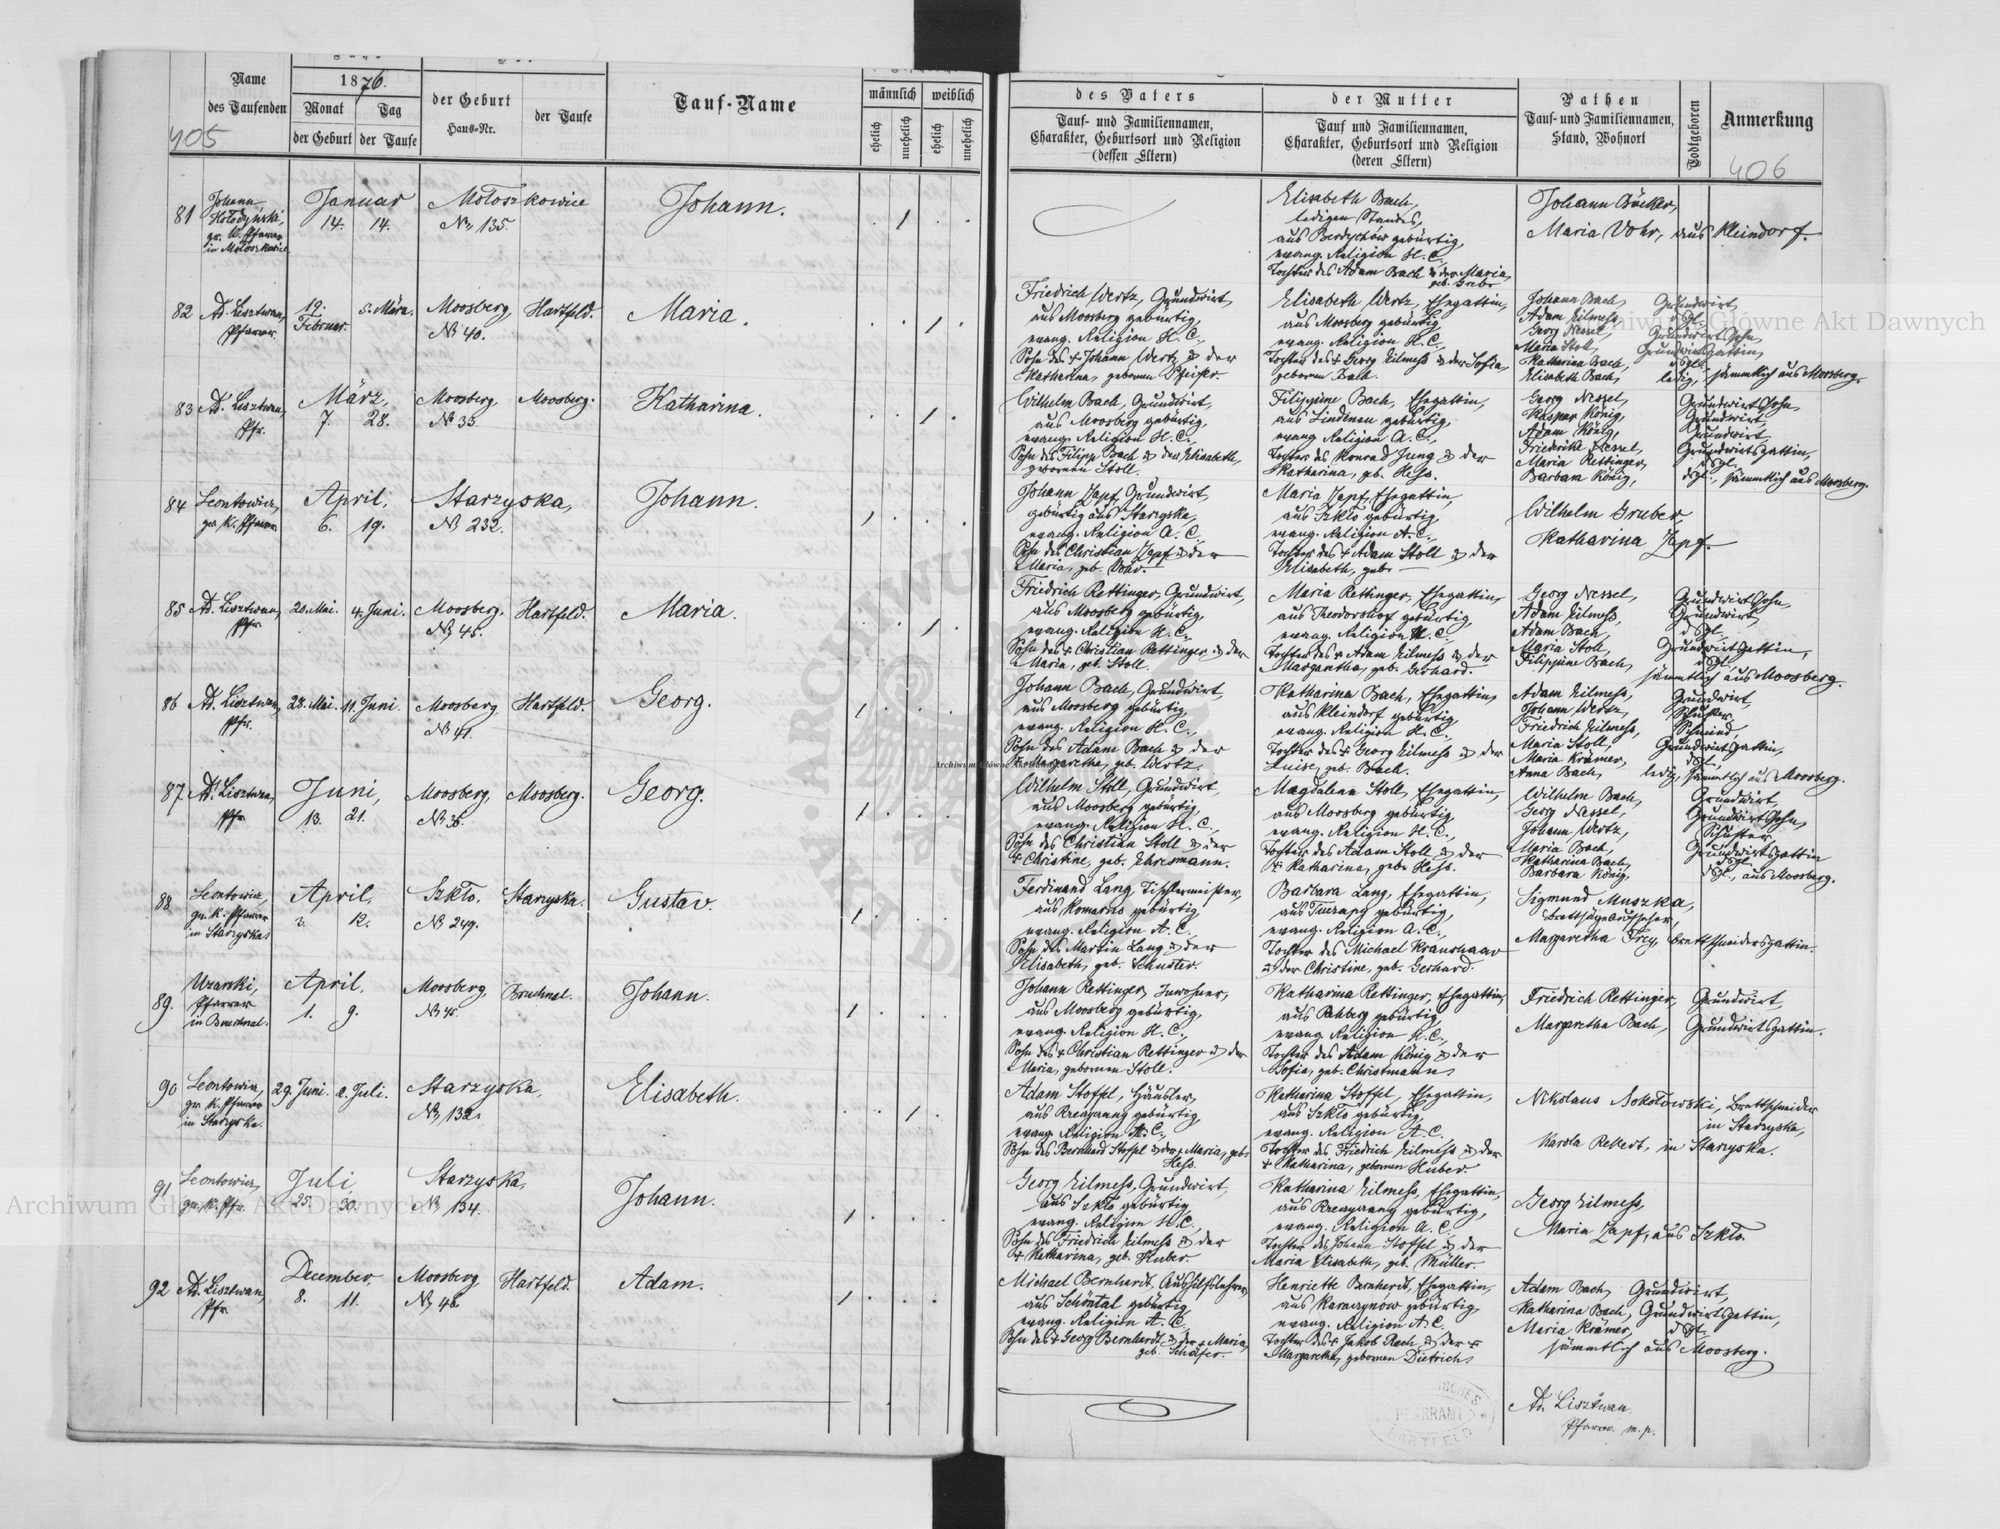 405
Name
des Taufenden
1876.
Monat
Tag
der Geburt
der Taufe
der Geburt
Haus-Nr.
der Taufe
Tauf-Name
männlich
weiblich
ehelich
unehelich
ehelich
unehelich
des Vaters
Tauf- und Familiennamen,
Charakter, Geburtsort und Religion
(dessen Eltern)
der Mutter
Tauf und Familiennamen,
Charakter, Geburtsort und Religion
(deren Eltern)
Pathen
Tauf- und Familiennamen,
Stand, Wohnort
Todtgeboren
Anmerkung
406
81
Johann
Hołodyński,
gr. k. Pfarrer
in Mołoszkowice
Januar
14. 14.
Mołoszkowice
№ 135.
Johann.
Elisabeth Bach,
ledigen Standes,
aus Berdychów gebürtig,
evang. Religion H. C.,
Tochter des Adam Bach & der Maria,
Johann Bäcker,
Maria Vohr, aus Kleindorf.
82 Ad. Lisztwan,
Pfarrer.
19.
Februar.
5. März.
Moosberg
№ 40.
Hartfeld.
Maria.
Friedrich Wertz, Grundwirt,
aus Moosberg gebürtig,
evang. Religion H. C.,
Sohn des + Johann Wertz & der
Katharina, gebornen Pfeifer.
Elisabeth Wertz, Ehegattin,
aus Moosberg gebürtig,
evang. Religion H. C.,
Tochter des + Georg Zilmess & der Sofia,
gebornen Bach.
Johann Bach, Grundwirt,
Adam Zilmess, dsgl.,
Georg Nessel, Grundwirtssohn,
Maria Stoll, Grundwirtsgattin,
Katharina Bach, dsgl.,
Elisabeth Bach, ledig, sämmtlich aus Moosberg.
83 Ad. Lisztwan,
Pfr.
März,
7. 28.
Moosberg,
№ 33.
Moosberg.
Katharina.
Wilhelm Bach, Grundwirt,
aus Moosberg gebürtig,
evang. Religion H. C.,
Sohn des Filipp Bach & der Elisabeth,
gebornen Stoll.
Filippine Bach, Ehegattin,
aus Lindenau gebürtig,
evang. Religion A. C.,
Tochter des Konrad Jung & der
Katharina, geb. Hess.
Georg Nessel, Grundwirtssohn,
Kaspar König, Grundwirt,
Adam König, Grundwirt,
Friederike Nessel, Grundwirtsgattin,
Maria Rettinger, dsgl.,
Barbara König, dsgl., sämmtlich aus Moosberg.
84 Leontowicz,
gr. k. Pfarrer
April,
6. 19.
Starzyska,
№ 232.
Johann.
Johann Zapf, Grundwirt,
gebürtig aus Starzyska,
evang. Religion A. C.,
Sohn des Christian Zapf & der
Maria, geb. Vohr.
Maria Zapf, Ehegattin,
aus Szkło gebürtig,
evang. Religion A. C.,
Tochter des + Adam Stoll & der
Elisabeth, geb. —
Wilhelm Gruber,
Katharina Zapf.
85 Ad. Lisztwan,
Pfr.
20. Mai. 4. Juni.
Moosberg,
№ 45.
Hartfeld.
Maria.
Friedrich Rettinger, Grundwirt,
aus Moosberg gebürtig,
evang. Religion H. C.,
Sohn des + Christian Rettinger & der
Maria, geb. Stoll.
Maria Rettinger, Ehegattin,
aus Theodorshof gebürtig,
evang. Religion H. C.,
Tochter des + Adam Zilmess & der
Margaretha, geb. Gerhard.
Georg Nessel, Grundwirtssohn,
Adam Zilmess, Grundwirt,
Adam Bach, dsgl.,
Maria Stoll, Grundwirtsgattin,
Filippine Bach, dsgl.,
sämmtlich aus Moosberg.
86 Ad. Lisztwan,
Pfr.
28. Mai. 11. Juni.
Moosberg
№ 41.
Hartfeld.
Georg.
Johann Bach, Grundwirt,
aus Moosberg gebürtig,
evang. Religion H. C.,
Sohn des Adam Bach & der
+ Margaretha, geb. Wertz.
Katharina Bach, Ehegattin,
aus Kleindorf gebürtig,
evang. Religion H. C.,
Tochter des + Georg Zilmess & der
Luise, geb. Bach.
Adam Zilmess, Grundwirt,
Johann Wertz, Schuster,
Friedrich Zilmess, Schmied,
Maria Stoll, Grundwirtsgattin,
Maria Krämer, dsgl.,
Anna Bach, ledig, sämmtlich aus Moosberg.
87. Ad. Lisztwan,
Pfr.
Juni,
13. 21.
Moosberg,
№ 36.
Moosberg.
Georg.
Wilhelm Stoll, Grundwirt,
aus Moosberg gebürtig,
evang. Religion H. C.,
Sohn des Christian Stoll & der
+ Christine, geb. Ehresmann.
Magdalena Stoll, Ehegattin,
aus Moosberg gebürtig,
evang. Religion H. C.,
Tochter des Adam Stoll & der
+ Katharina, geb. Hess.
Wilhelm Bach, Grundwirt,
Georg Nessel, Grundwirtssohn,
Johann Wertz, Schuster,
Maria Bach, Grundwirtsgattin
Katharina Bach, dsgl.
Barbara König, dsgl., aus Moosberg.
88 Leontowicz,
gr. k. Pfarrer
in Starzyska
April,
3. 12.
Szkło.
№ 249.
Starzyska.
Gustav.
Ferdinand Lang, Tischlermeister,
aus Komarno gebürtig,
evang. Religion A. C.,
Sohn des Martin Lang & der
Elisabeth, geb. Schuster.
Barbara Lang, Ehegattin,
aus gebürtig,
evang. Religion A. C.,
Tochter des Michael Kraushaar
& der Christine, geb. Gerhard.
Sigmund Muszka,
Brettsägeaufseher,
Margaretha Frey, Brettschneidersgattin.
89. Uzarski,
Pfarrer
in Bruchnal.
April
1. 9.
Moosberg,
№ 45.
Bruchnal.
Johann.
Johann Rettinger, Inwohner,
aus Moosberg gebürtig,
evang. Religion H. C.,
Sohn des + Christian Rettinger & der
Maria, gebornen Stoll.
Katharina Rettinger, Ehegattin,
aus Rehberg gebürtig,
evang. Religion H. C.,
Tochter des Adam König & der
Sofia, geb. Christmann
Friedrich Rettinger, Grundwirt,
Margaretha Bach, Grundwirtsgattin.
90 Leontowicz,
gr. k. Pfarrer
in Starzyska.
29. Juni. 2. Juli.
Starzyska,
№ 132.
Elisabeth.
Adam Stoffel, Häusler,
aus gebürtig,
evang. Religion A. C.,
Sohn des Bernhard Stoffel & der + Maria, geb.
Hess.
Katharina Stoffel, Ehegattin,
aus Szkło gebürtig,
evang. Religion A. C.
Tochter des Friedrich Zilmess & der
+ Katharina, gebornen Huber.
Nikolaus Sokołowski, Brettschneider
in Starzyska,
Karola Rekert, in Starzyska.
91 Leontowicz,
gr. k. Pfr.
Juli,
25. 30.
Starzyska,
№ 134.
Johann.
Georg Zilmess, Grundwirt,
aus Szkło gebürtig,
evang. Religion H. C.
Sohn des Friedrich Zilmess & der
+ Katharina, geb. Huber.
Katharina Zilmess, Ehegattin,
aus gebürtig,
evang. Religion A. C.
Tochter des Johann Stoffel & der
Maria Elisabeth, geb. Müller.
Georg Zilmess,
Maria Zapf, aus Szkło.
92 Ad. Lisztwan,
Pfr.
December,
8. 11.
Moosberg
№ 46.
Hartfeld.
Adam.
Michael Bernhardt, Aushilfslehrer,
aus Schöntal gebürtig,
evang. Religion A. C.,
Sohn des + Georg Bernhardt & der + Maria,
geb. Schäfer.
Henriette Bernhardt, Ehegattin,
aus Karaczynów gebürtig,
evang. Religion A. C.
Tochter des + Jakob Rech & der +
Margaretha, gebornen Dietrich
Adam Bach, Grundwirt,
Katharina Bach, Grundwirtsgattin,
Maria Krämer, dsgl.
sämmtlich aus Moosberg.
Ad. Lisztwan.
Pfarrer m. p.
PFARRAMT
HARTFELD
Archiwum Główne Akt Dawnych
Archiwum Główne Akt Dawnych